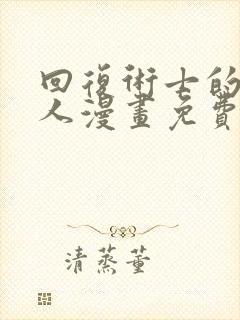 回復術士的
人漫畫免費
清蒸董